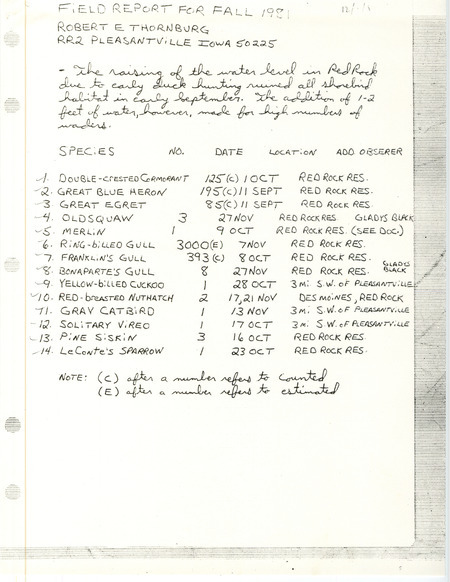 FIELD REPORT FOR FALL 1981
ROBERT E THORNBURG
RR2 PLEASANTVILLE IOWA 50225
- The raising of the water level in Red Rock
due to early duck hunting ruined all shorebird
habitat in early September. The addition of 1-2
feet of water, however, made for high numbers of
waders.
SPECIES NO. DATE LOCATION ADD OBSERER
1. DOUBLE-CRESTED CORMORANT 125(C) 1 OCT RED ROCK RES.
2. GREAT BLUE HERON 195(C) 11 SEPT RED ROCK RES.
3. GREAT EGRET 85(C) 11 SEPT RED ROCK RES.
4. OLDSQUAW 3 27 NOV RED ROCK RES. GLADYS BLACK
5. MERLIN 1 9 OCT RED ROCK RES. (SEE DOC.)
6. RING-BILLED GULL 3000(E) 7 NOV RED ROCK RES.
7. FRANKLIN'S GULL 393(C) 8 OCT RED ROCK RES.
8. BONAPARTE'S GULL 8 27 NOV RED ROCK RES. GLADYS BLACK
9. YELLOW-BILLED CUCKOO 1 28 OCT 3 Mi. S.W. OF PLEASANTVILLE
10. RED-BREASTED NUTHATCH 2 17,21 NOV DES MOINES, RED ROCK
11. GRAY CATBIRD 1 13 NOV 3 Mi. S.W. OF PLEASANTVILLE
12. SOLITARY VIREO 1 17 OCT 3 Mi. S.W. OF PLEASANTVILLE
13. PINE SISKIN 3 16 OCT RED ROCK RES.
14. LECONTE'S SPARROW 1 23 OCT RED ROCK RES.
NOTE: (C) after a number refers to counted
(E) after a number refers to estimated